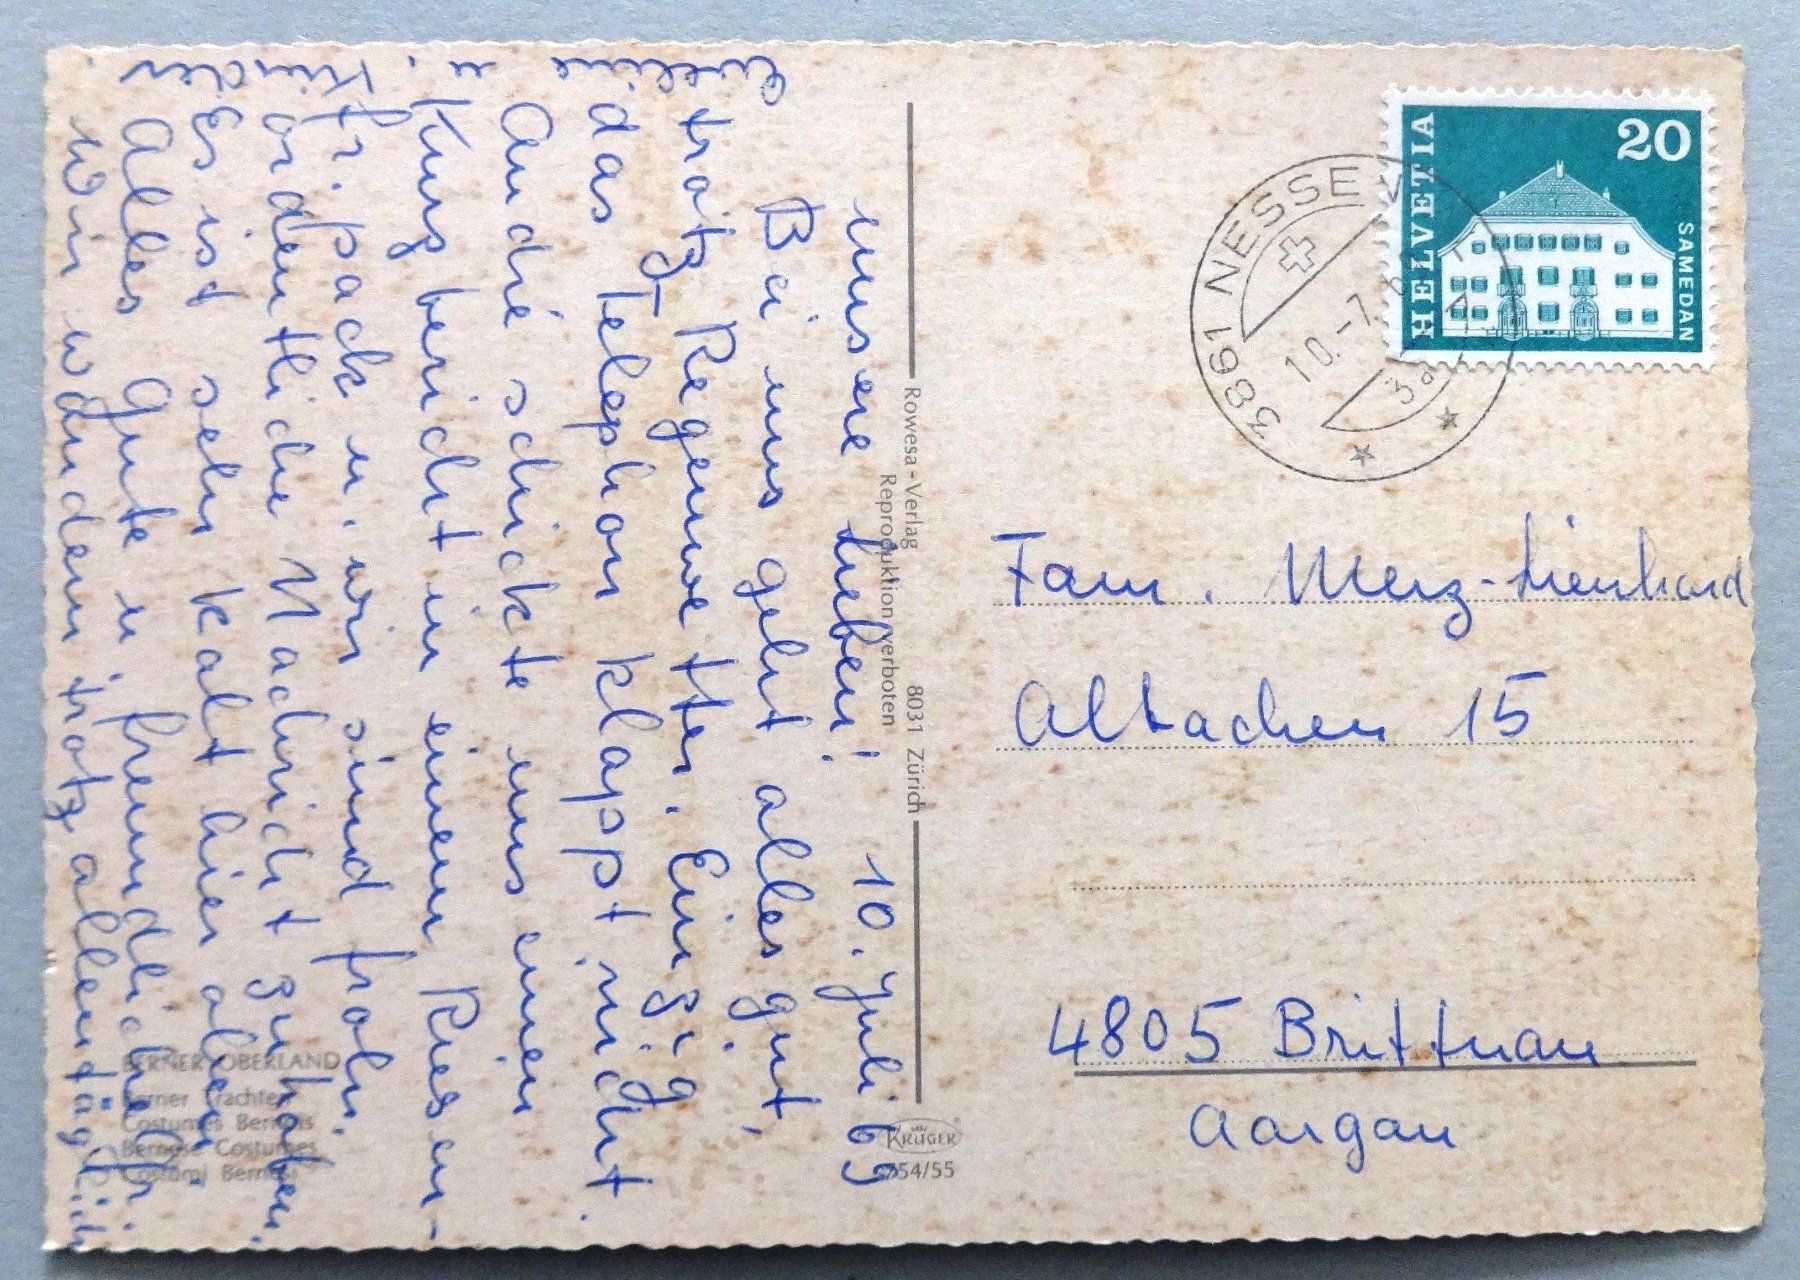 HELVETIA
20
SAMEDAN
3861 NESSE
10.-7.
Fam. Merz-Lienhard
Altachen 15
4805 Brittnau
Aargau
Rowesa-Verlag 8031 Zürich
Reproduktion verboten
KRÜGER
54/55
unsere Lieben! 10. Juli 69
Bei uns geht alles gut,
trotz Regenwetter. Einzig
das Telephon klappt nicht.
André schickte uns einen
Kurzbericht in einem Riesen-
pack u. wir sind froh,
ordentliche Nachricht zu haben.
Es ist sehr kalt hier oben.
Alles Gute u. freundliche Gr.
Wir wandern trotz allem täglich
BERNER OBERLAND
Berner Trachten
Costumes Bernois
Bernese Costumes
Costumi Bernesi